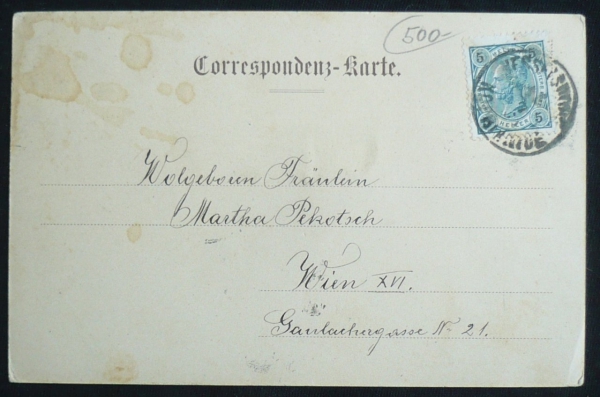 500-
Correspondenz-Karte.
5
5
HELLER
Wolgeboren Fräulein
Martha Pekotsch
Wien XVI.
Gaulachergasse No 21.